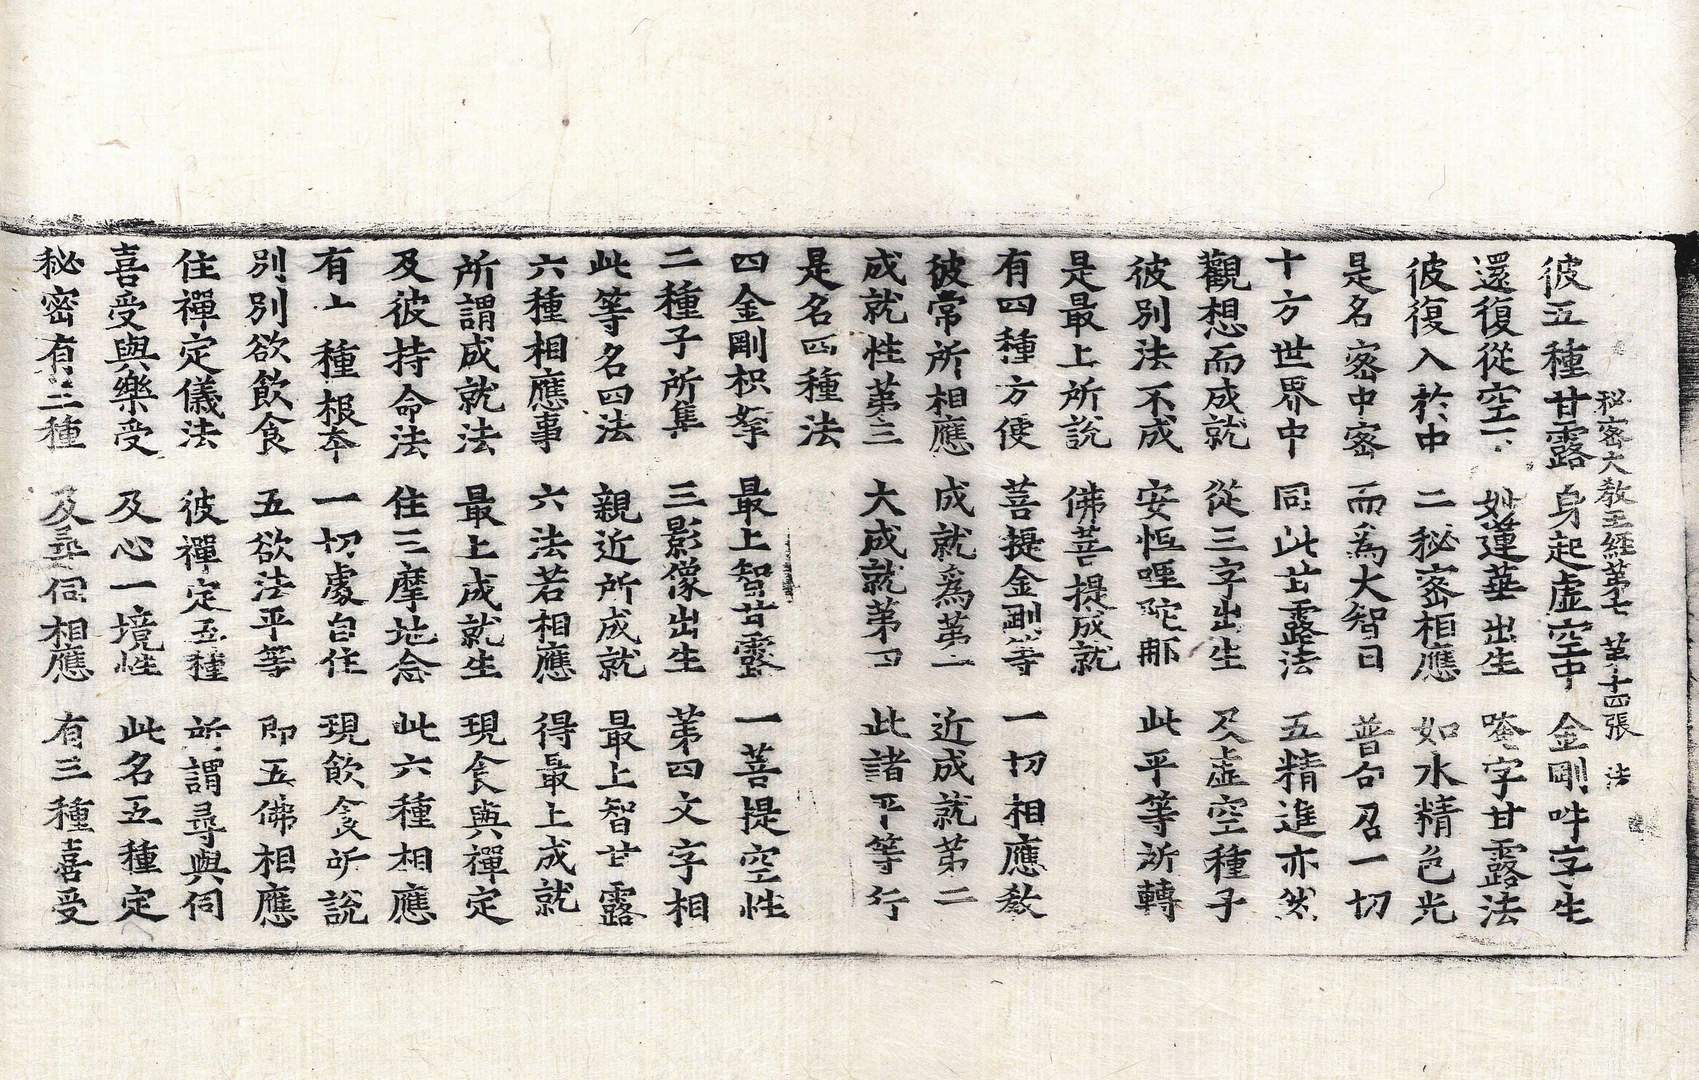 秘密大教王經第七　第十四張　法
彼五種甘露　身起虛空中　金剛吽字生
還復從空下　妙蓮華出生　唵字甘露法
彼復入於中　二秘密相應　如水精色光
是名密中密　而為大智日　普召一切
十方世界中　同此甘露法　五精進亦然
觀想而成就　從三字出生　及虛空種子
彼別法不成　安怛哩陀那　此平等所轉
是最上所說　佛菩提成就
有四種方便　菩提金剛等　一切相應教
彼常所相應　成就為第一　近成就第二
成就性第三　大成就第四　此諸平等行
是名四種法
四金剛枳拏　最上智甘露　一菩提空性
二種子所集　三影像出生　第四文字相
此等名四法　親近所成就　最上智甘露
六種相應事　六法若相應　得最上成就
所謂成就法　最上成就生　現食與禪定
及彼持命法　住三摩地念　此六種相應
有十種根本　一切處自住　現飲食所說
別別欲飲食　五欲法平等　即五佛相應
住禪定儀法　彼禪定五種　所謂尋與伺
喜受與樂受　及心一境性　此名五種定
秘密有三種　及尋伺相應　有三種喜受